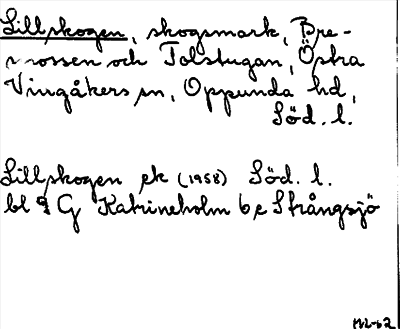 Lillskogen, skogsmark, Bre-
vrossen och Tolstugan, Östra
Vingåkers sn, Oppunda hd,
Söd. l.
Lillskogen ek (1958) Söd. l.
bl 9 G Katrineholm 6 e Strångsjö